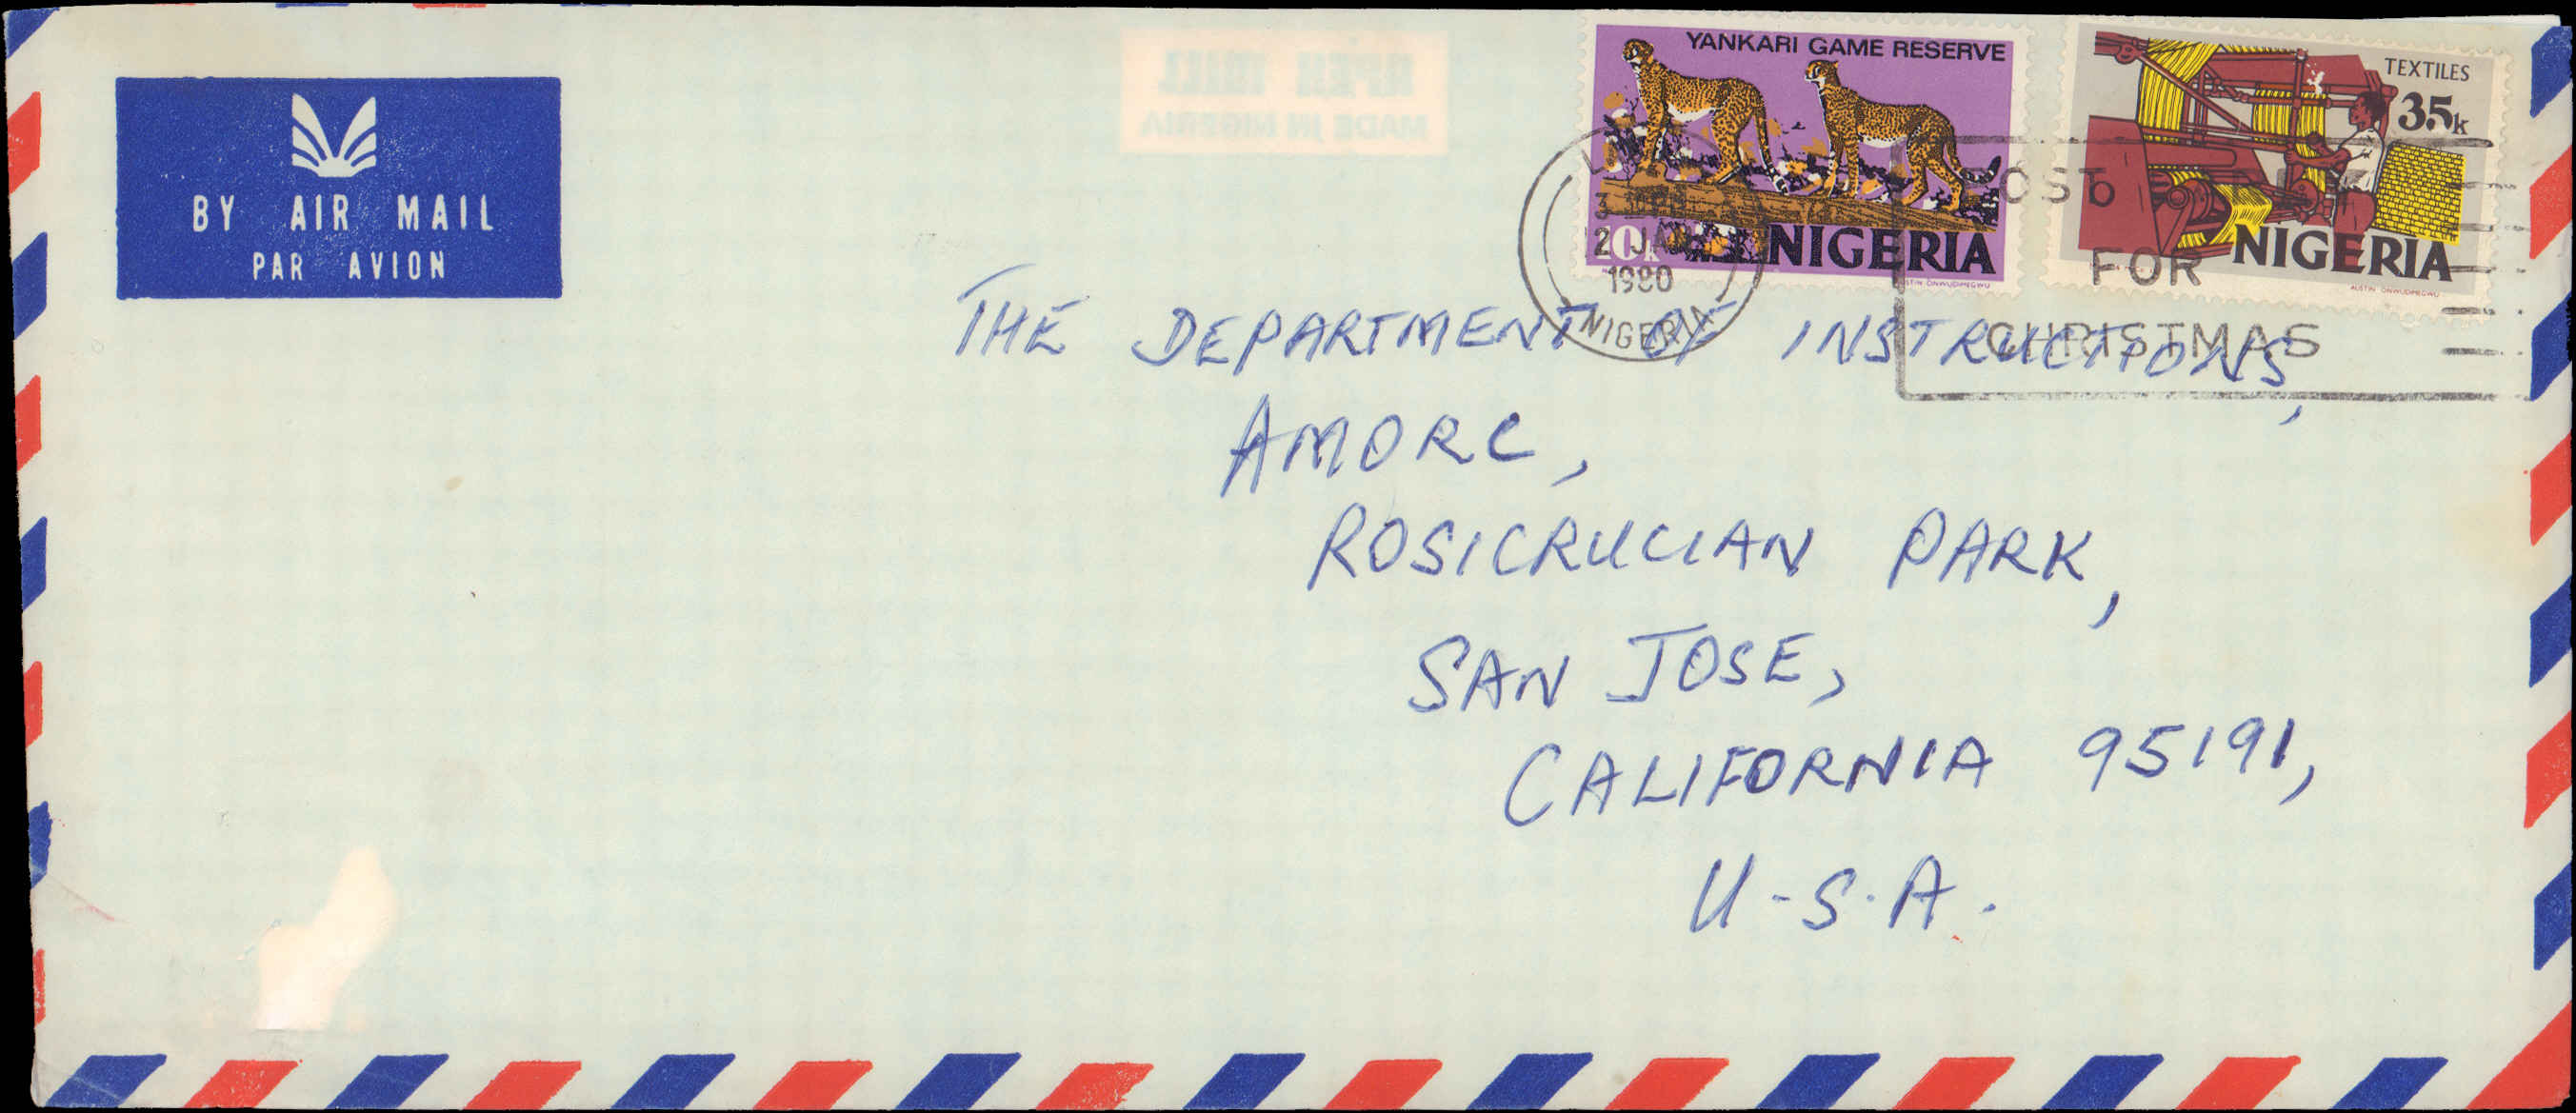 BY AIR MAIL
PAR AVION
MADE IN NIGERIA
YANKARI GAME RESERVE
10k NIGERIA
AUSTIN ONWUDIMEGWU
TEXTILES
35k
NIGERIA
AUSTIN ONWUDIMEGWU
2 JA
1980
NIGERIA
FOR
CHRISTMAS
THE DEPARTMENT OF INSTRUCTIONS,
AMORC,
ROSICRUCIAN PARK,
SAN JOSE,
CALIFORNIA 95191,
U-S.A.